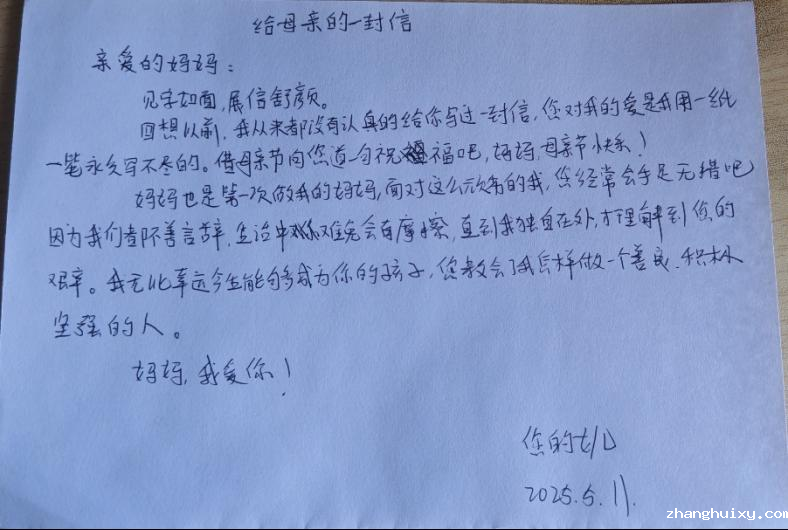 给母亲的一封信
亲爱的妈妈：
见字如面，展信舒颜。
回想以前，我从来都没有认真的给你写过一封信，您对我的爱是我用一纸
一笔永久写不尽的。借母亲节向您道一句祝福吧，妈妈，母亲节快乐！
妈妈也是第一次做我的妈妈，面对这么顽劣的我，您经常会手足无措吧
因为我们都不善言辞，生活中难免会有摩擦，直到我独自在外，才理解到您的
艰辛。我无比幸运今生能够成为你的孩子，您教会了我怎样做一个善良、积极
坚强的人。
妈妈，我爱你！
您的女儿
2025.5.11.
zhanghuixy.com